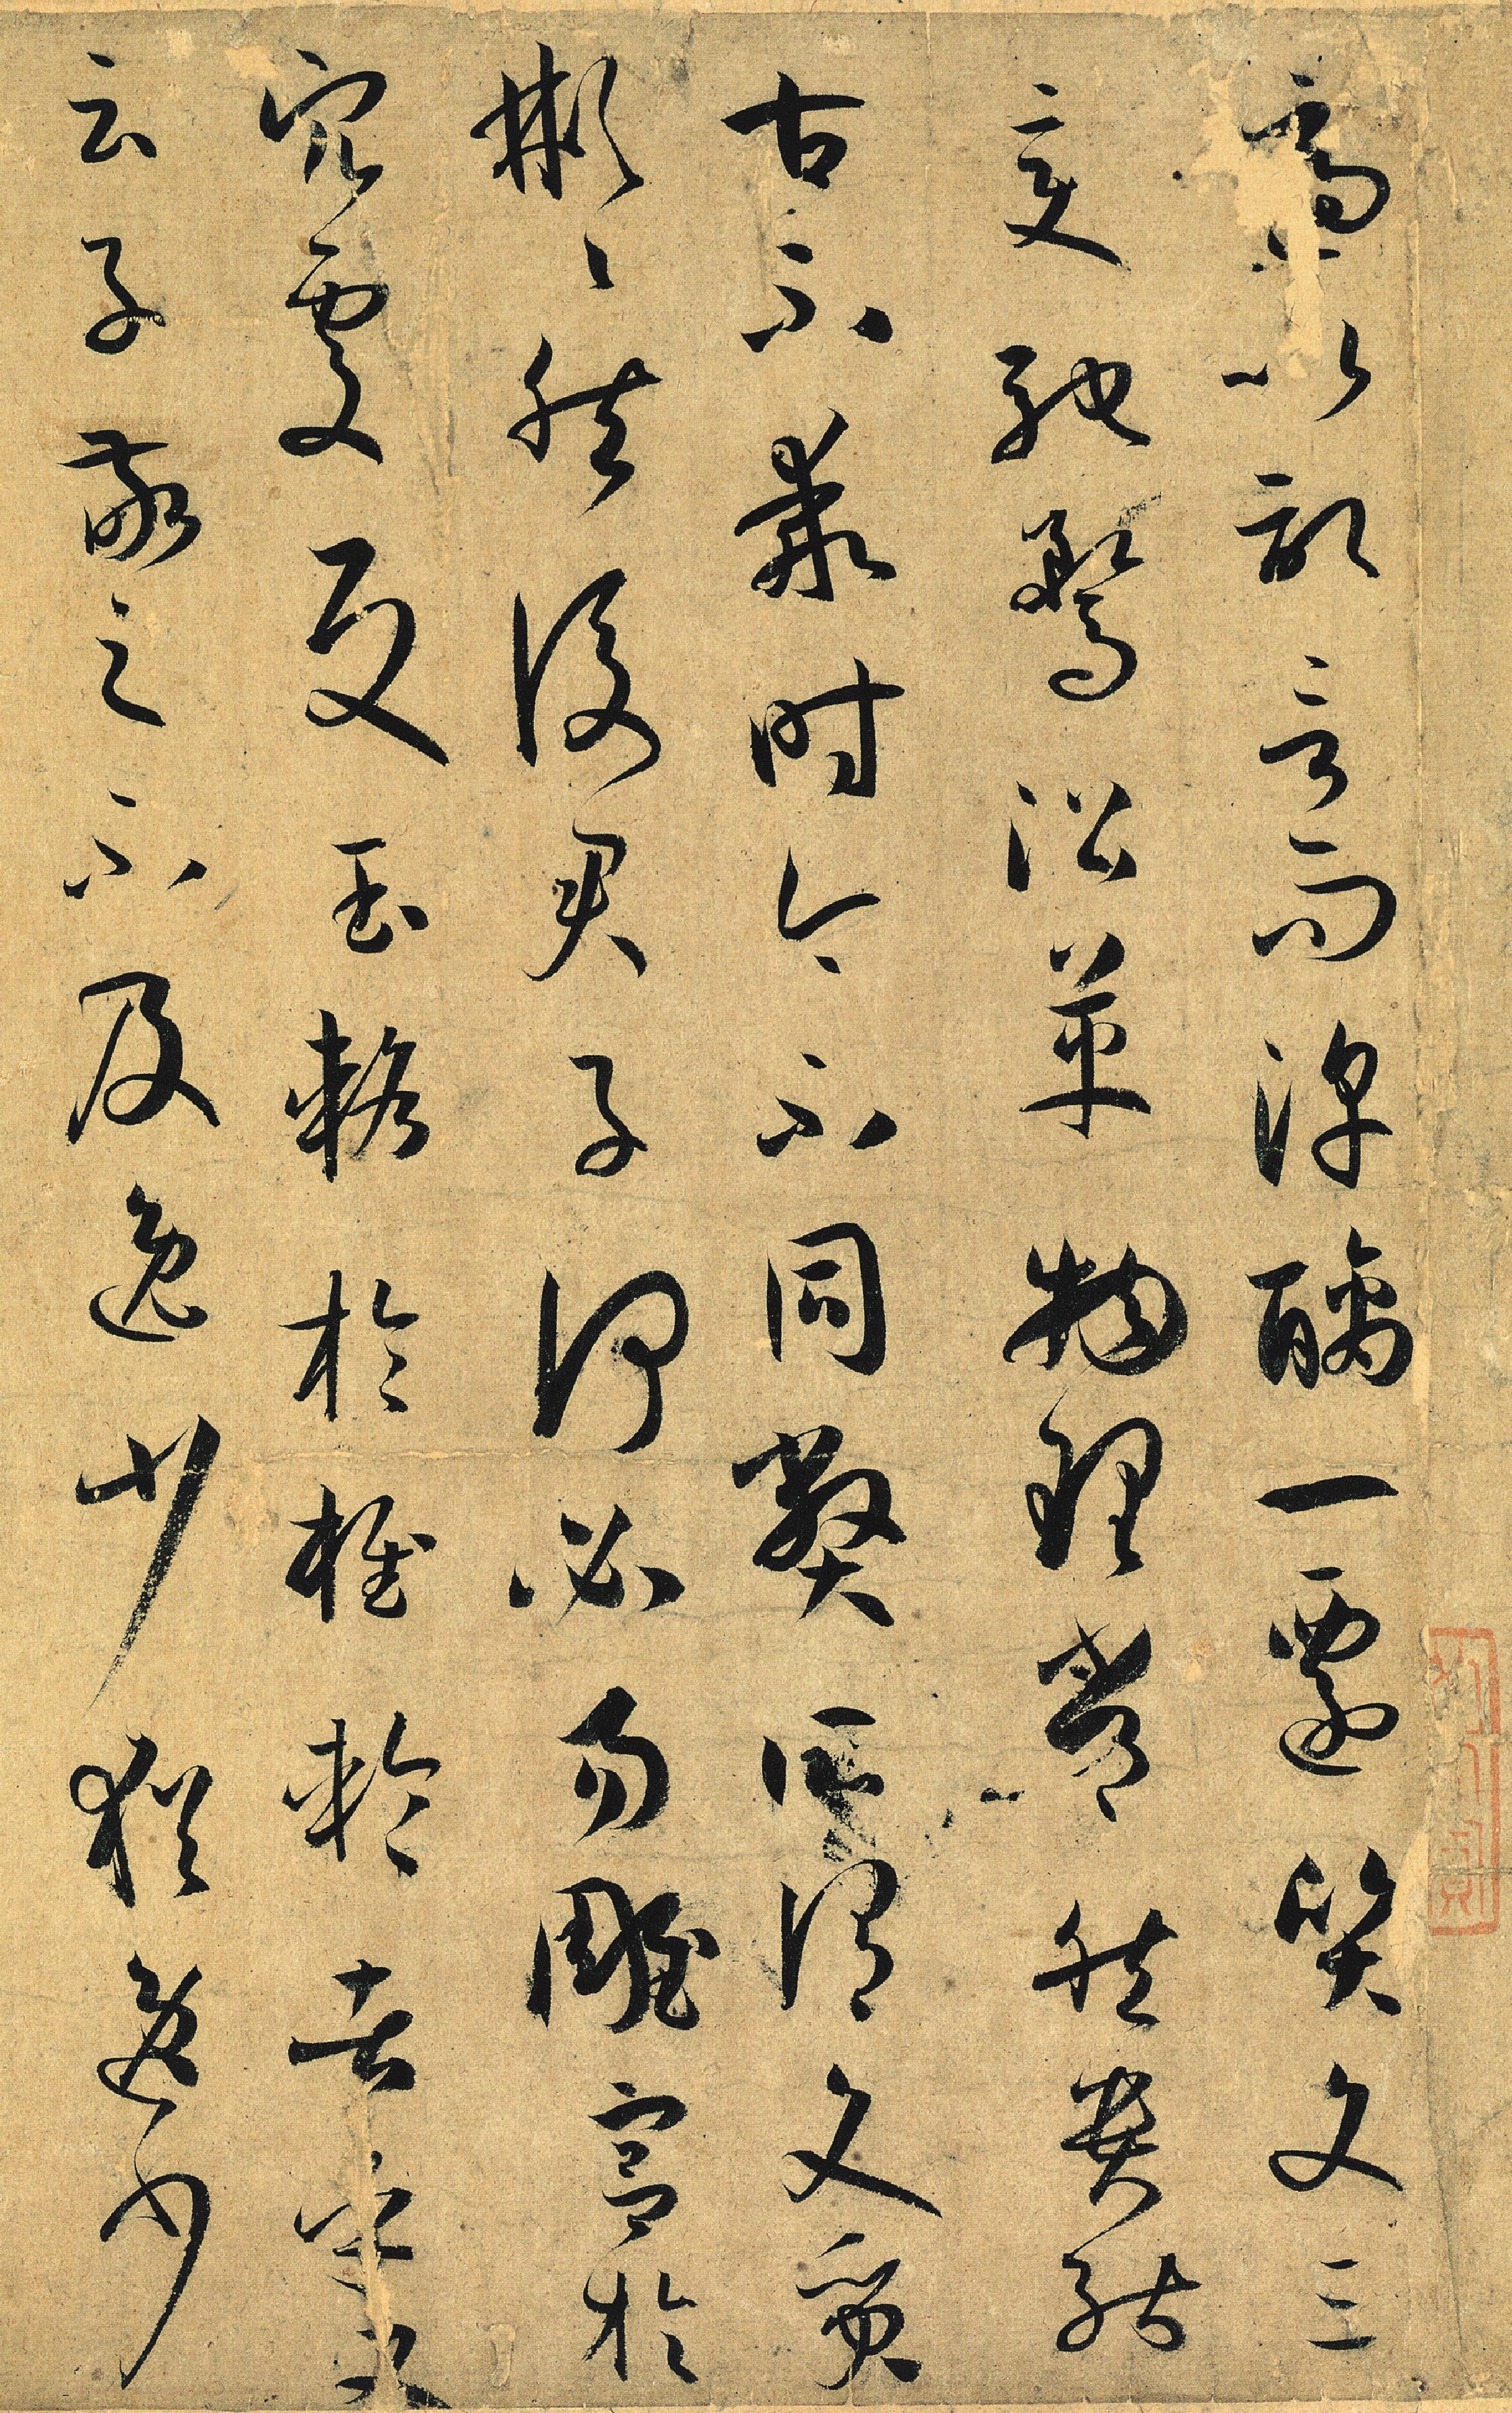 適以記言而淳醨一遷質文三
變馳騖沿革物理常然貴能
古不乖時今不同弊所謂文質
彬彬然後君子何必易雕宮於
穴處反玉輅於椎輪者乎又
云子敬之不及逸少猶逸少